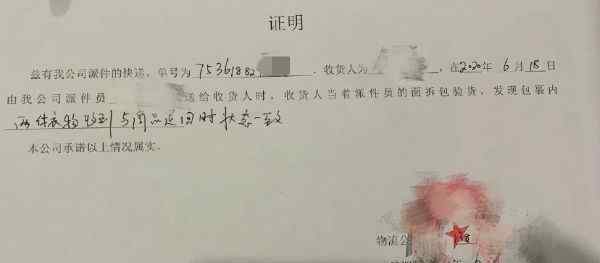 证明
兹有我公司派件的快递,单号为75361882,收货人为,在2020年6月18日
由我公司派件员送给收货人时,收货人当着派件员的面拆包验货,发现包裹内
两件衣物收到与商品退回时状态一致
本公司承诺以上情况属实。
物流公